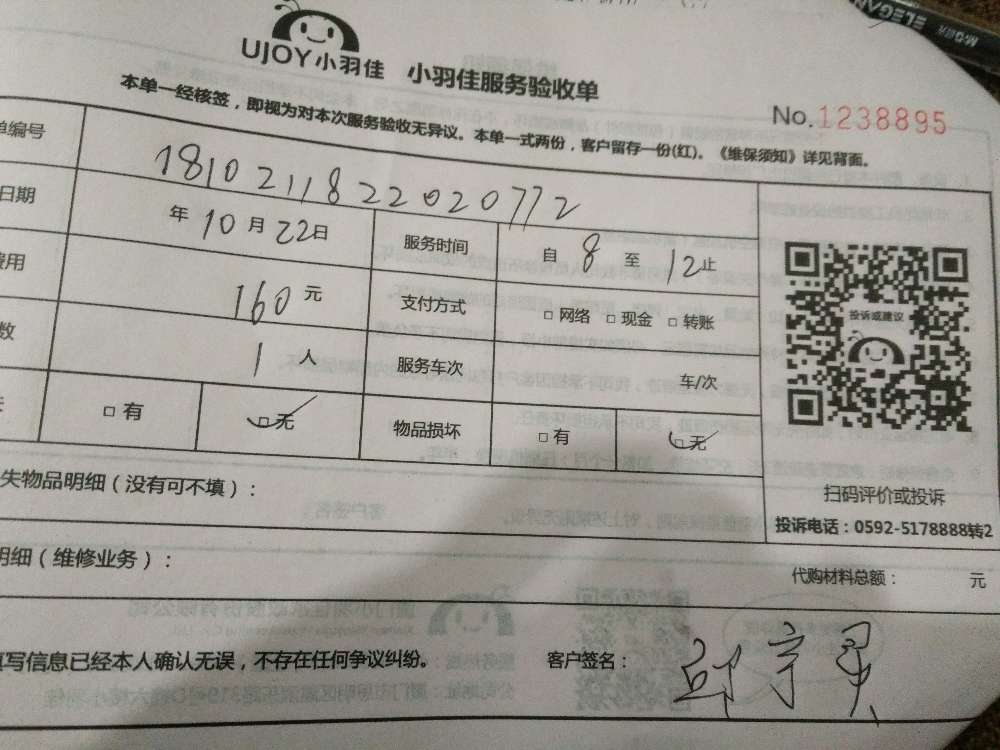 ELEGAN
UJOY小羽佳 小羽佳服务验收单
No.1238895
本单一经核签，即视为对本次服务验收无异议。本单一式两份，客户留存一份(红)。《维保须知》详见背面。
单编号 1810211822020772
日期 年 10 月 22 日 服务时间 自 8 至 12 止
费用 160 元 支付方式 □ 网络 □ 现金 □ 转账
数 1 人 服务车次 车/次
□ 有 □ 无 物品损坏 □ 有 □ 无
投诉或建议
扫码评价或投诉
投诉电话：0592-5178888转2
失物品明细（没有可不填）：
明细（维修业务）： 代购材料总额： 元
填写信息已经本人确认无误，不存在任何争议纠纷。 客户签名：